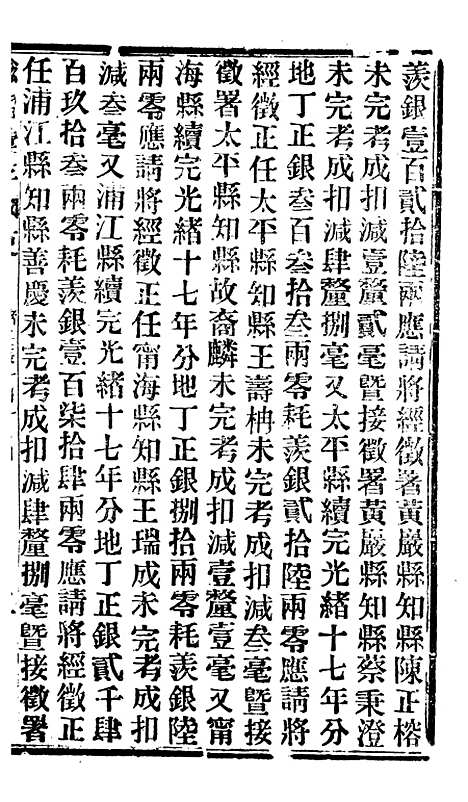 羡銀壹百貳拾陸兩應請將經徵署黃巖縣知縣陳正榕
未完考成扣減壹釐貳毫暨接徵署黃巖縣知縣蔡秉澄
未完考成扣減肆釐捌毫又太平縣續完光緒十七年分
地丁正銀叁百叁拾叁兩零耗羡銀貳拾陸兩零應請將
經徵正任太平縣知縣王壽枬未完考成扣減叁毫暨接
徵署太平縣知縣故裔麟未完考成扣減壹釐壹毫又甯
海縣續完光緒十七年分地丁正銀捌拾兩零耗羡銀陸
兩零應請將經徵正任甯海縣知縣王瑞成未完考成扣
減叁毫又浦江縣續完光緒十七年分地丁正銀貳千肆
百玖拾叁兩零耗羡銀壹百柒拾肆兩零應請將經徵正
任浦江縣知縣善慶未完考成扣減肆釐捌毫暨接徵署